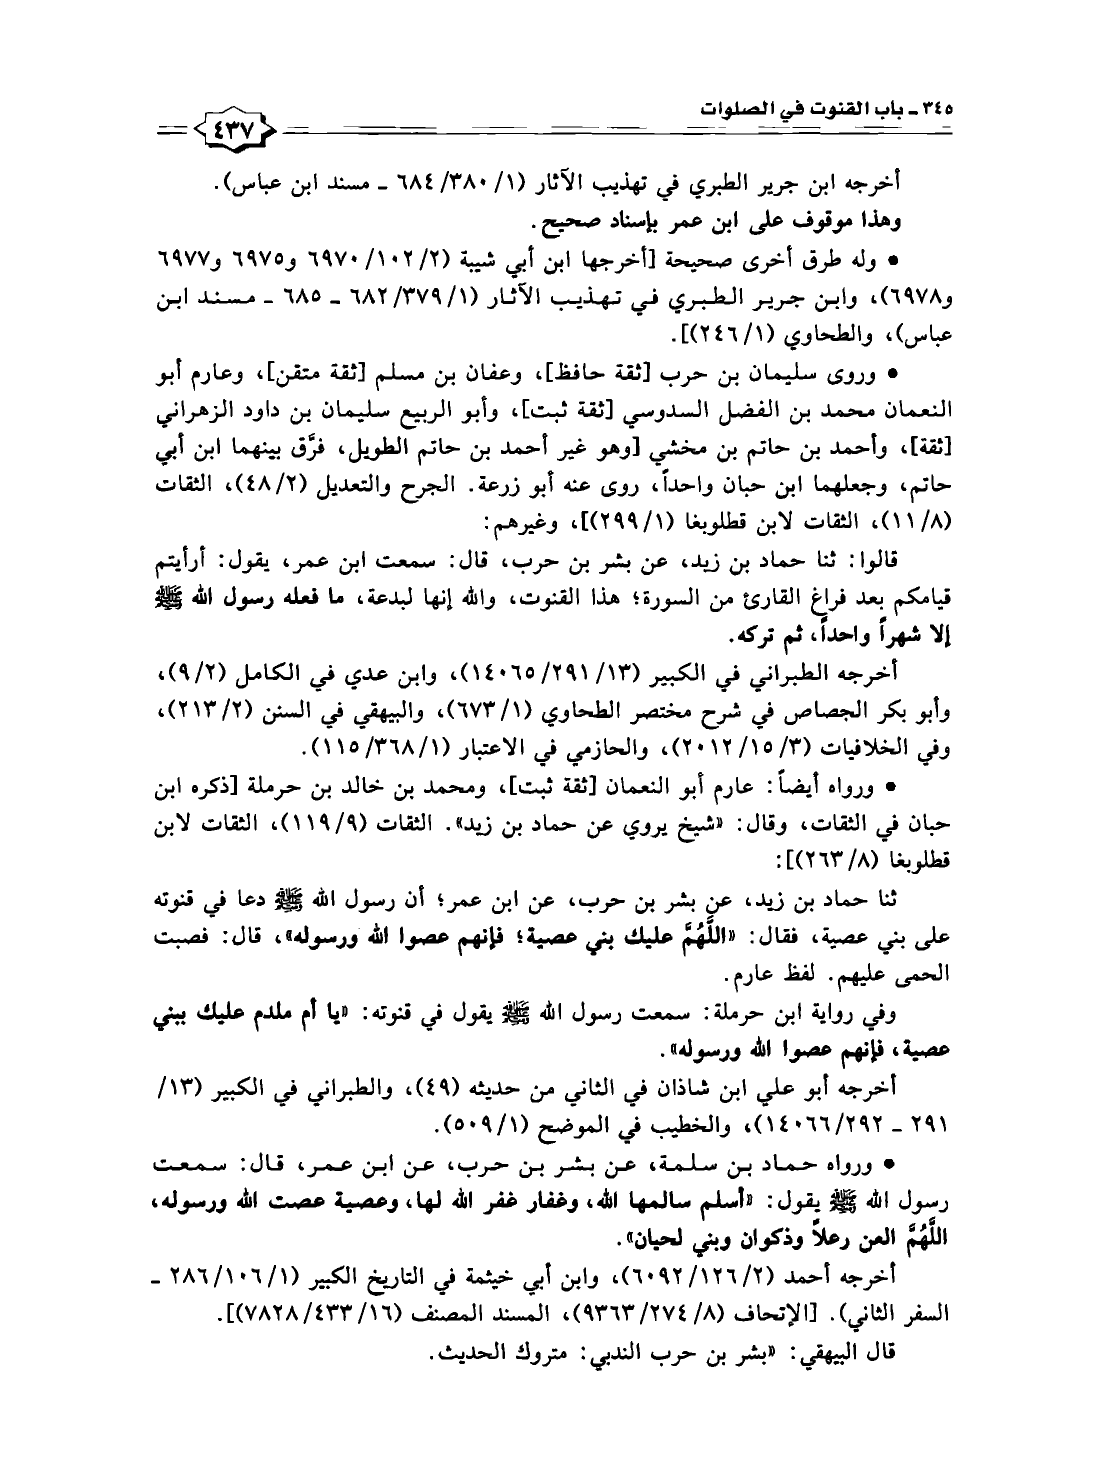 ٣٤٥ ـ باب القنوت في الصلوات
٤٣٧
أخرجه ابن جرير الطبري في تهذيب الآثار (١/ ٣٨٠/ ٦٨٤ ـ مسند ابن عباس).
وهذا موقوف على ابن عمر بإسناد صحيح.
• وله طرق أخرى صحيحة [أخرجها ابن أبي شيبة (٢/ ١٠٢/ ٦٩٧٠ و٦٩٧٥ و٦٩٧٧
و٦٩٧٨)، وابن جرير الطبري في تهذيب الآثار (١/ ٣٧٩/ ٦٨٢ ـ ٦٨٥ ـ مسند ابن
عباس)، والطحاوي (١/ ٢٤٦)].
• وروى سليمان بن حرب [ثقة حافظ]، وعفان بن مسلم [ثقة متقن]، وعارم أبو
النعمان محمد بن الفضل السدوسي [ثقة ثبت]، وأبو الربيع سليمان بن داود الزهراني
[ثقة]، وأحمد بن حاتم بن مخشي [وهو غير أحمد بن حاتم الطويل، فرَّق بينهما ابن أبي
حاتم، وجعلهما ابن حبان واحداً، روى عنه أبو زرعة. الجرح والتعديل (٢/ ٤٨)، الثقات
(٨/ ١١)، الثقات لابن قطلوبغا (١/ ٢٩٩)]، وغيرهم:
قالوا: ثنا حماد بن زيد، عن بشر بن حرب، قال: سمعت ابن عمر، يقول: أرأيتم
قيامكم بعد فراغ القارئ من السورة؛ هذا القنوت، والله إنها لبدعة، ما فعله رسول الله ﷺ
إلا شهراً واحداً، ثم تركه.
أخرجه الطبراني في الكبير (١٣/ ٢٩١/ ١٤٠٦٥)، وابن عدي في الكامل (٢/ ٩)،
وأبو بكر الجصاص في شرح مختصر الطحاوي (١/ ٦٧٣)، والبيهقي في السنن (٢/ ٢١٣)،
وفي الخلافيات (٣/ ١٥/ ٢٠١٢)، والحازمي في الاعتبار (١/ ٣٦٨/ ١١٥).
• ورواه أيضاً: عارم أبو النعمان [ثقة ثبت]، ومحمد بن خالد بن حرملة [ذكره ابن
حبان في الثقات، وقال: «شيخ يروي عن حماد بن زيد». الثقات (٩/ ١١٩)، الثقات لابن
قطلوبغا (٨/ ٢٦٣)]:
ثنا حماد بن زيد، عن بشر بن حرب، عن ابن عمر؛ أن رسول الله ﷺ دعا في قنوته
على بني عصية، فقال: «اللَّهُمَّ عليك بني عصية؛ فإنهم عصوا الله ورسوله»، قال: فصبت
الحمى عليهم. لفظ عارم.
وفي رواية ابن حرملة: سمعت رسول الله ﷺ يقول في قنوته: «يا أم ملدم عليك ببني
عصية، فإنهم عصوا الله ورسوله».
أخرجه أبو علي ابن شاذان في الثاني من حديثه (٤٩)، والطبراني في الكبير (١٣/
٢٩١ ـ ٢٩٢/ ١٤٠٦٦)، والخطيب في الموضح (١/ ٥٠٩).
• ورواه حماد بن سلمة، عن بشر بن حرب، عن ابن عمر، قال: سمعت
رسول الله ﷺ يقول: «أسلم سالمها الله، وغفار غفر الله لها، وعصية عصت الله ورسوله،
اللَّهُمَّ العن رعلاً وذكوان وبني لحيان».
أخرجه أحمد (٢/ ١٢٦/ ٦٠٩٢)، وابن أبي خيثمة في التاريخ الكبير (١/ ١٠٦/ ٢٨٦ ـ
السفر الثاني). [الإتحاف (٨/ ٢٧٤/ ٩٣٦٣)، المسند المصنف (١٦/ ٤٣٣/ ٧٨٢٨)].
قال البيهقي: «بشر بن حرب الندبي: متروك الحديث.